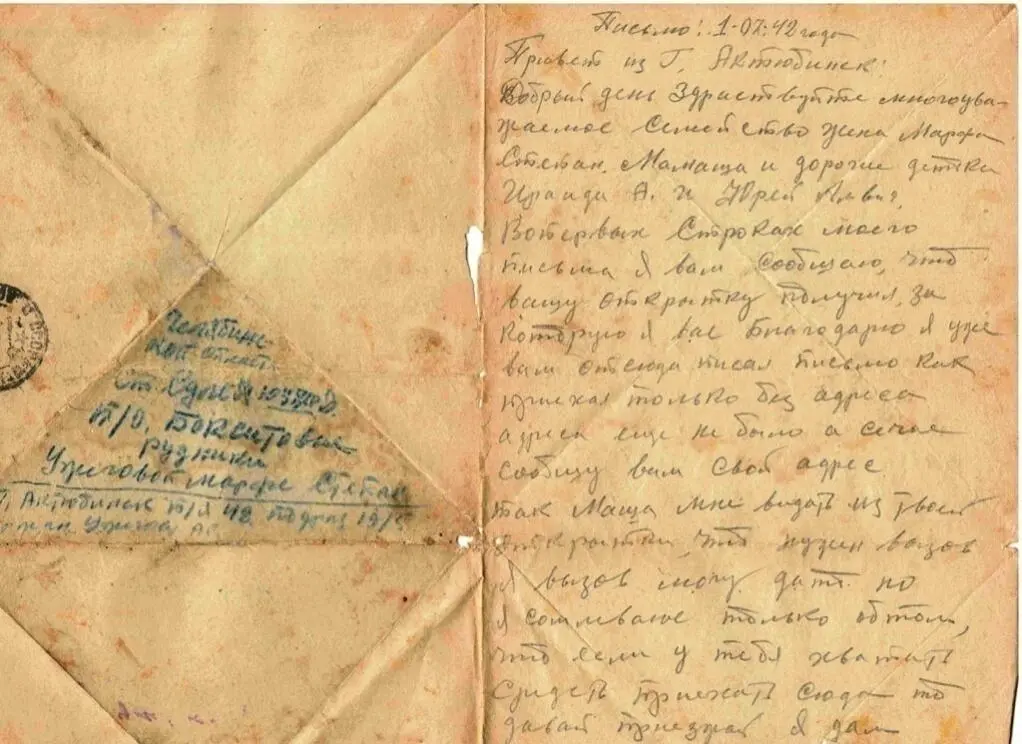 Челябинс-
кой области
ст.
П/О, Бокситовые
рудники
Ужеговой Марфе Степан
Актюбинск П/Я 42 подраз 19/
Письмо! 1-07-42 года
Привет из Г. Актюбинск!
Добрый день Здраствуйте многоува-
жаемое Семейство жена Марфа
Степан. Мамаша и дорогие детки
Ираида А. и Юрей
Вопервых Строках моего
письма Я вам сообщаю, что
вашу открытку получил, за
которую я вас благодарю я уже
вам отсюда писал письмо как
приехал только без адреса
адреса еще не было а сечас
сообщу вам свой адрес
так Маша мне видать из твоей
открытки, что нужен вызов
Я вызов могу дать но
я сомневаюс только об том,
что если у тебя хватать
средств приехать сюда то
давай приезжай Я дам